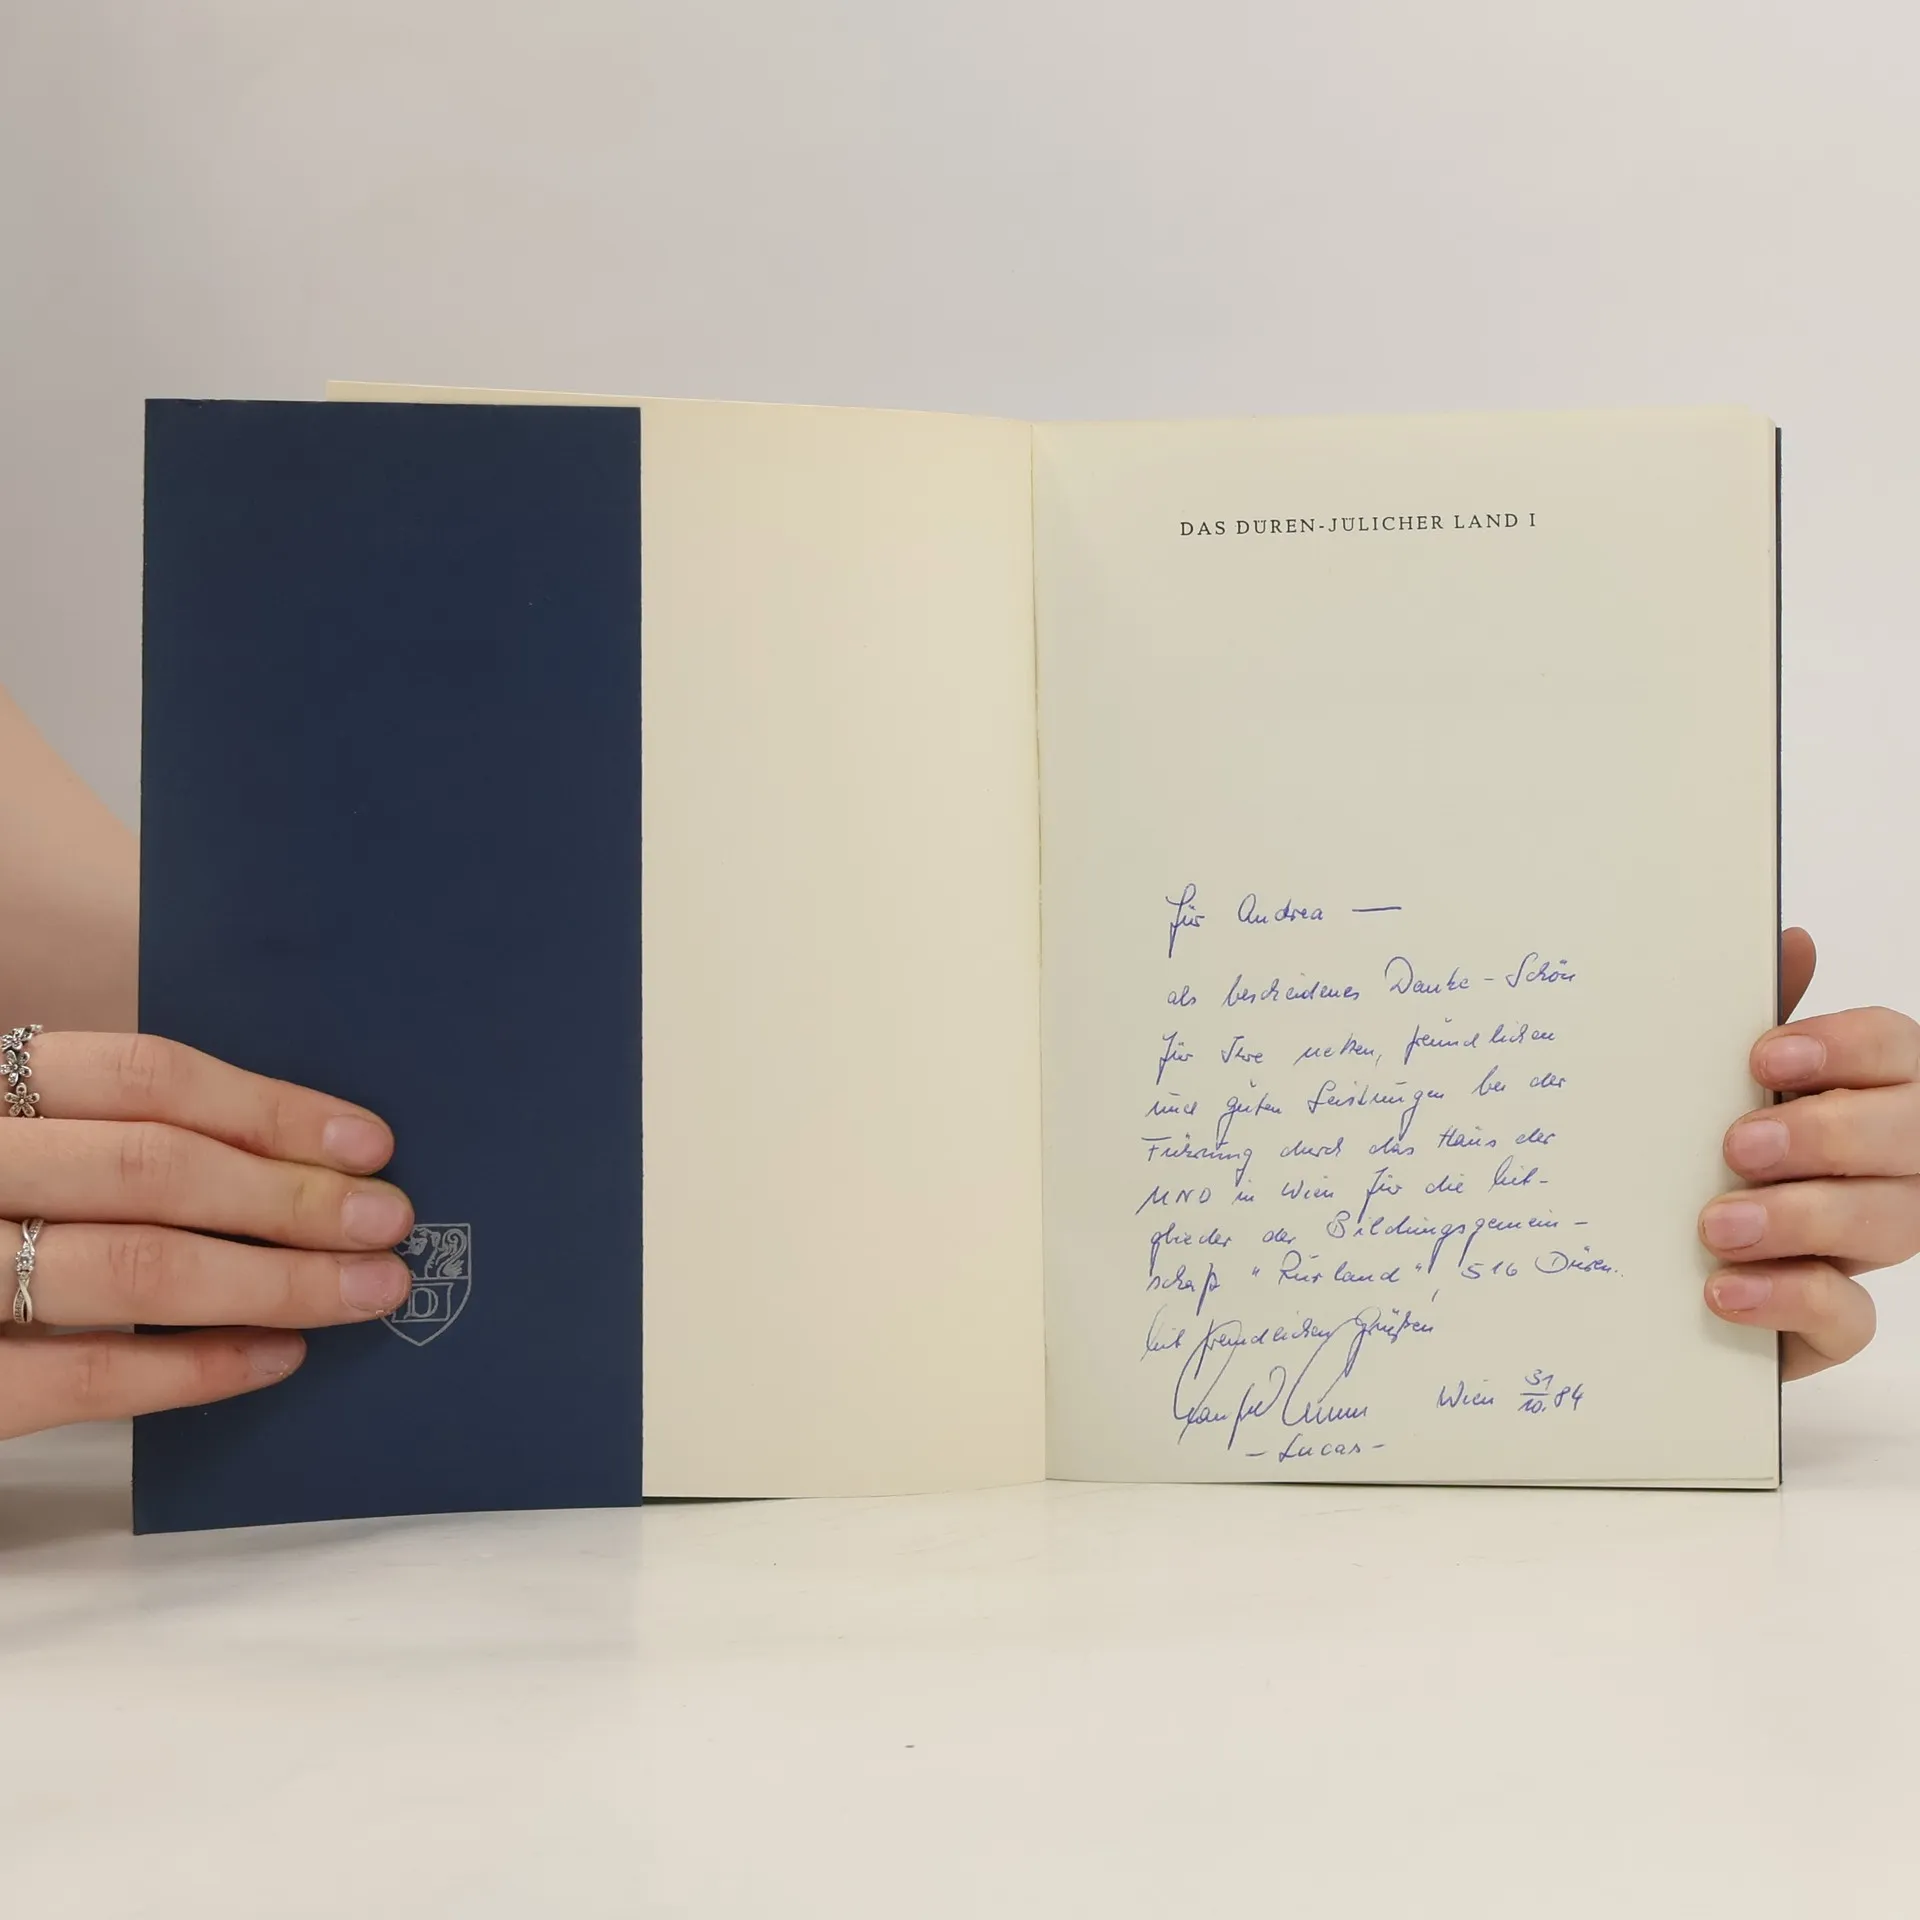 DAS DÜREN-JÜLICHER LAND I
für Andrea —
als bescheidenes Danke-Schön
für Ihre netten, freundlichen
und guten Leistungen bei der
Führung durch das Haus der
UNO in Wien für die Mit-
glieder der Bildungsgemein-
schaft "Rurland", 516 Düren.
Mit freundlichen Grüßen
Wien 31/10.84
- Lucas -
D